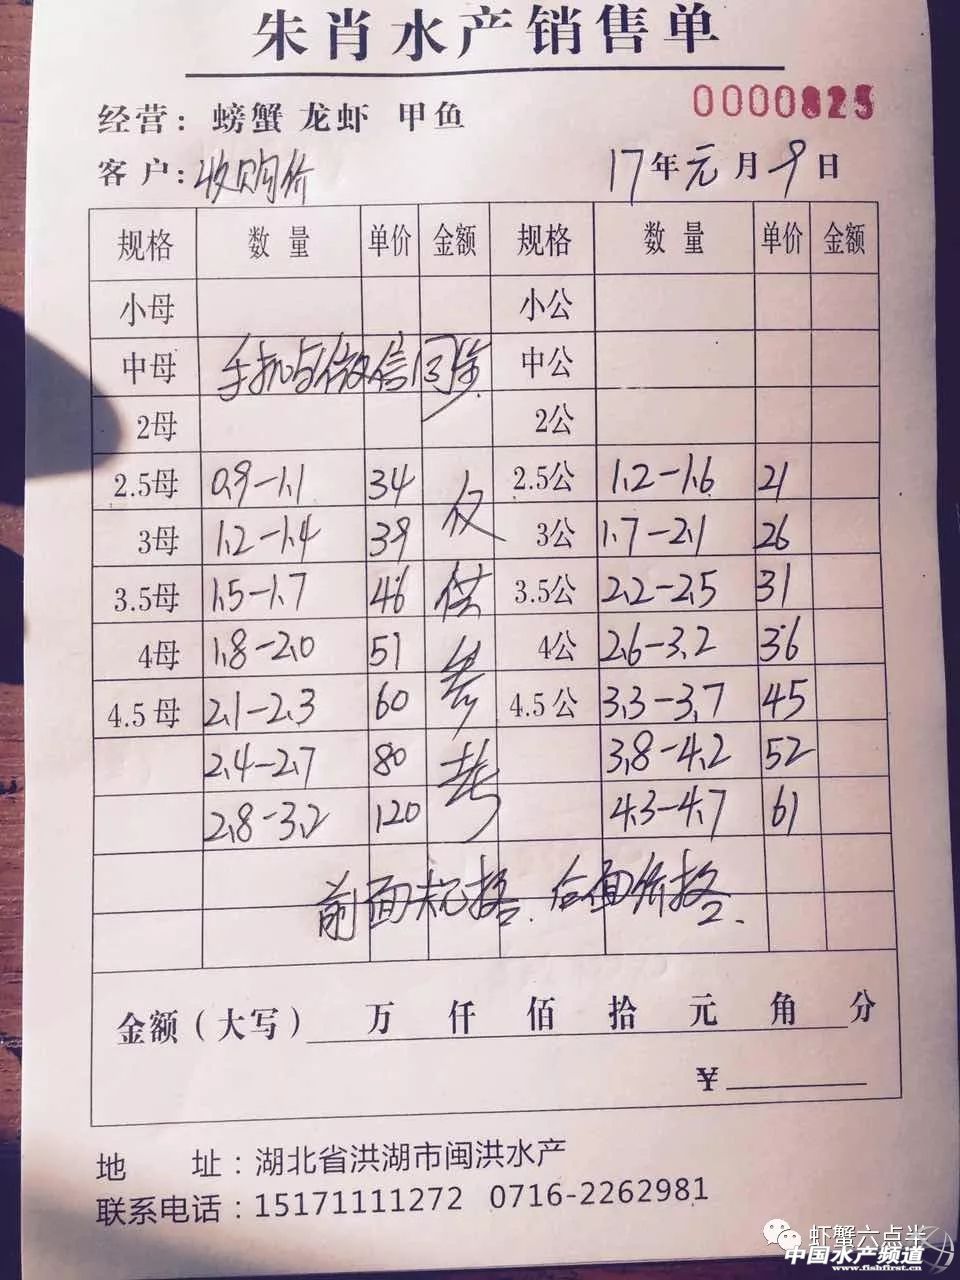 朱肖水产销售单
0000825
经营：螃蟹 龙虾 甲鱼
客户：收购价 17年元月9日
规格 数量 单价 金额 规格 数量 单价 金额
小母 小公
中母 手机与微信同步 中公
2母 2公
2.5母 0.9-1.1 34 仅 2.5公 1.2-1.6 21
3母 1.2-1.4 39 3公 1.7-2.1 26
3.5母 1.5-1.7 46 供 3.5公 2.2-2.5 31
4母 1.8-2.0 51 参 4公 2.6-3.2 36
4.5母 2.1-2.3 60 4.5公 3.3-3.7 45
2.4-2.7 80 考 3.8-4.2 52
2.8-3.2 120 4.3-4.7 61
前面规格.后面价格.
金额（大写） 万 仟 佰 拾 元 角 分
¥
地 址：湖北省洪湖市闽洪水产
联系电话：15171111272 0716-2262981
虾蟹六点半
中国水产频道
www.fishfirst.cn